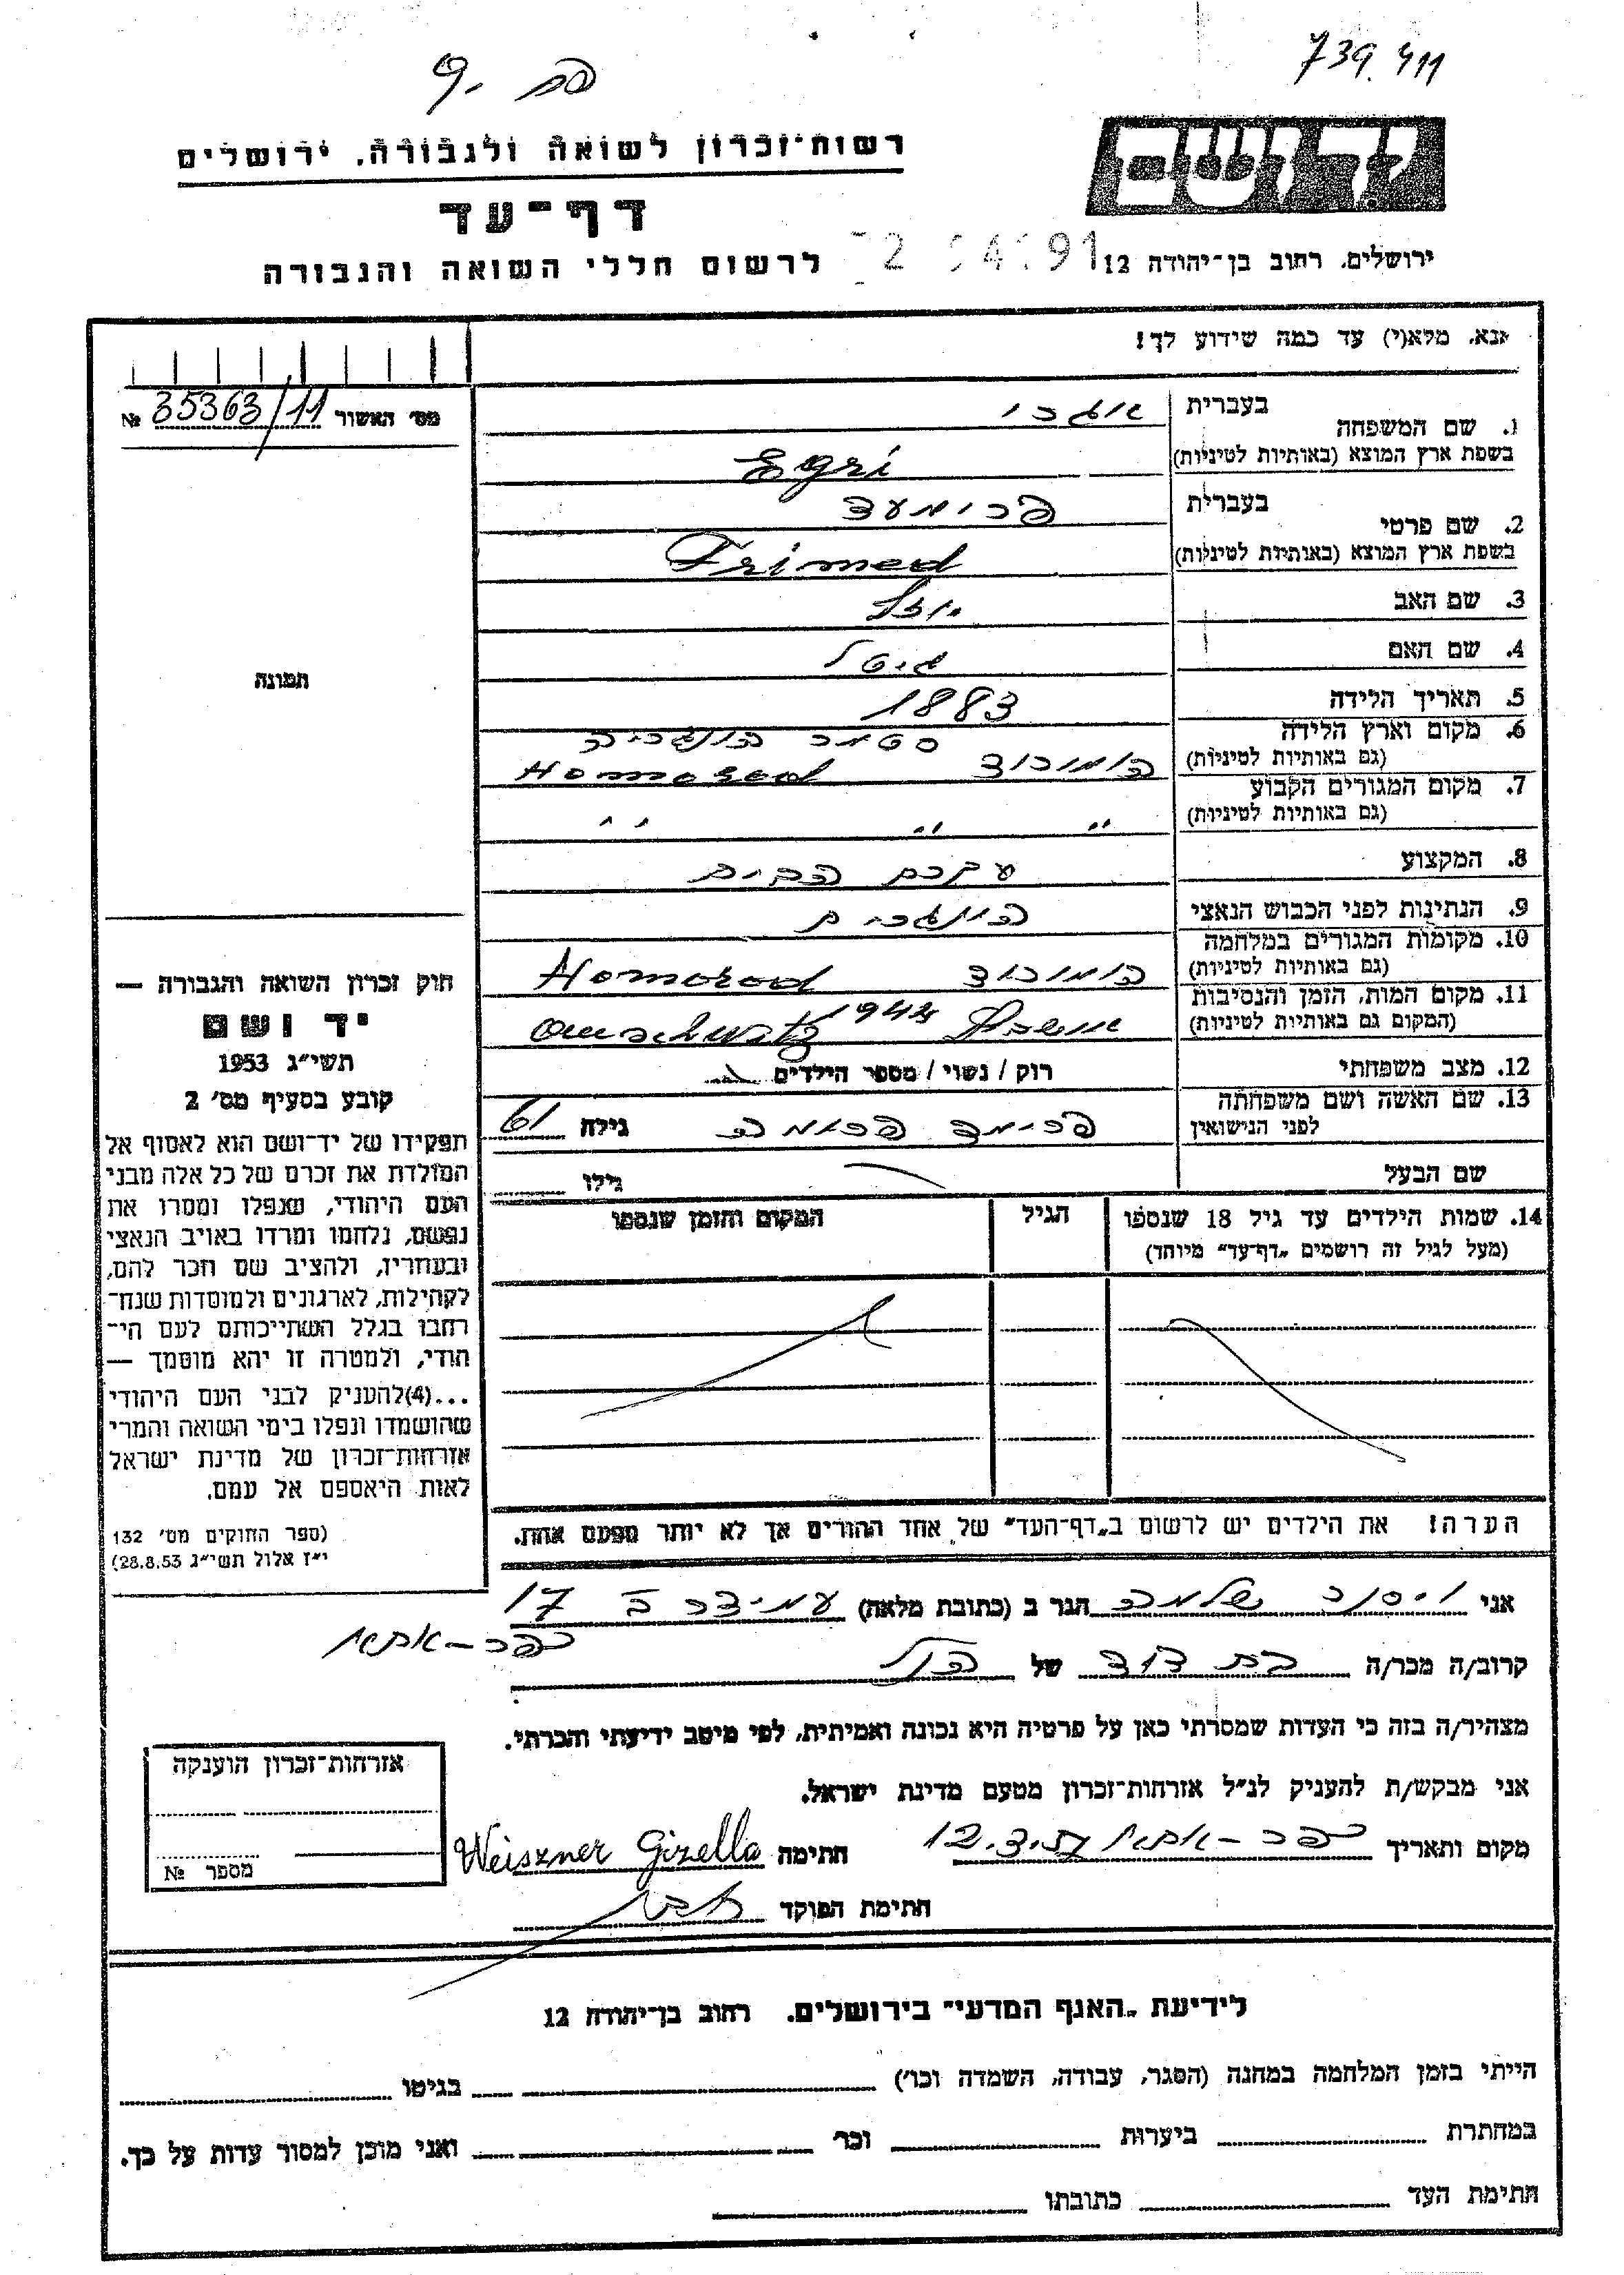 739.411
פח .9
יד ושם
רשות־זכרון לשואה ולגבורה, ירושלים
דף־עד
לרשום חללי השואה והגבורה
ירושלים, רחוב בן־יהודה 12
אנא, מלא(י) עד כמה שידוע לך!
מס׳ האשור 35363/11 №
1. שם המשפחה
בעברית אגרי
בשפת ארץ המוצא (באותיות לטיניות) Egri
2. שם פרטי
בעברית פרימעד
בשפת ארץ המוצא (באותיות לטיניות) Frimed
3. שם האב
4. שם האם גיטל
5. תאריך הלידה 1883
6. מקום וארץ הלידה סטמר הונגריה
(גם באותיות לטיניות) הומורוד Homorod
7. מקום המגורים הקבוע
(גם באותיות לטיניות) " " "
8. המקצוע עקרת הבית
9. הנתינות לפני הכבוש הנאצי הונגרית
10. מקומות המגורים במלחמה
(גם באותיות לטיניות) הומורוד Homorod
11. מקום המות, הזמן והנסיבות
(המקום גם באותיות לטיניות) 1944
12. מצב משפחתי רוק / נשוי / מספר הילדים
13. שם האשה ושם משפחתה
לפני הנישואין גילה 61
שם הבעל גילו
14. שמות הילדים עד גיל 18 שנספו הגיל המקום והזמן שנספו
(מעל לגיל זה רושמים „דף־עד" מיוחד)
הערה! את הילדים יש לרשום ב„דף־העד" של אחד ההורים אך לא יותר מפעם אחת.
תמונה
חוק זכרון השואה והגבורה —
יד ושם
תשי״ג 1953
קובע בסעיף מס׳ 2
תפקידו של יד־ושם הוא לאסוף אל
המולדת את זכרם של כל אלה מבני
העם היהודי, שנפלו ומסרו את
נפשם, נלחמו ומרדו באויב הנאצי
ובעוזריו, ולהציב שם וזכר להם,
לקהילות, לארגונים ולמוסדות שנח־
רבו בגלל השתייכותם לעם הי־
הודי, ולמטרה זו יהא מוסמך —
...(4)להעניק לבני העם היהודי
שהושמדו ונפלו בימי השואה והמרי
אזרחות־זכרון של מדינת ישראל
לאות היאספם אל עמם.
(ספר החוקים מס׳ 132
י״ז אלול תשי״ג 28.8.53)
אני ויסנר שלמה הגר ב (כתובת מלאה) עמידר ב 17
כפר-אתא
קרוב/ה מכר/ה בת דוד של הנ״ל
מצהיר/ה בזה כי העדות שמסרתי כאן על פרטיה היא נכונה ואמיתית, לפי מיטב ידיעתי והכרתי.
אני מבקש/ת להעניק לנ״ל אזרחות־זכרון מטעם מדינת ישראל.
מקום ותאריך כפר-אתא חתימה Weiszner Gizella
חתימת הפוקד
אזרחות־זכרון הוענקה
מספר №
לידיעת „האגף המדעי" בירושלים. רחוב בן־יהודה 12
הייתי בזמן המלחמה במחנה (הסגר, עבודה, השמדה וכו׳) בגיטו
במחתרת ביערות וכו׳ ואני מוכן למסור עדות על כך.
חתימת העד כתובתו